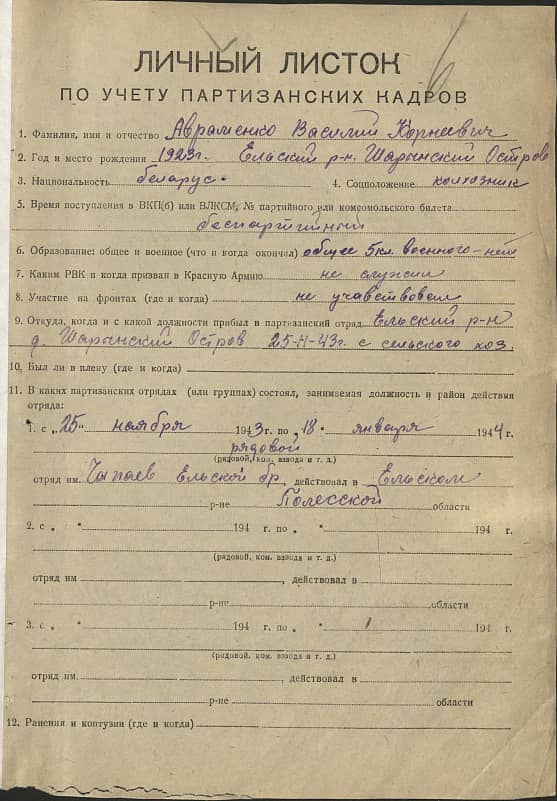 ЛИЧНЫЙ ЛИСТОК
ПО УЧЕТУ ПАРТИЗАНСКИХ КАДРОВ
1. Фамилия, имя и отчество Авраменко Василий Корнеевич
2. Год и место рождения 1923г. Ельский р-н. Шарынский Остров
3. Национальность беларус. 4. Соцположение колхозник
5. Время поступления в ВКП(б) или ВЛКСМ, № партийного или комсомольского билета
беспартийный
6. Образование: общее и военное (что и когда окончил) общее 5кл. военного-нет
7. Каким РВК и когда призван в Красную Армию не служил
8. Участие на фронтах (где и когда) не учавствовал
9. Откуда, когда и с какой должности прибыл в партизанский отряд Ельский р-н
д. Шарынский Остров 25-11-43г. с сельского хоз.
10. Был ли в плену (где и когда)
11. В каких партизанских отрядах (или группах) состоял, занимаемая должность и район действия
отряда:
1. с „25" ноября 1943г. по „18" января 1944г.
рядовой
(рядовой, ком. взвода и т. д.)
отряд им. Чапаев Ельской бр, действовал в Ельском
р-не Полесской области
2. с „ " 194 г. по „ " 194 г.
(рядовой, ком. взвода и т. д.)
отряд им , действовал в
р-не области
3. с „ " 194 г. по „ " 194 г.
(рядовой, ком. взвода и т. д.)
отряд им. , действовал в
р-не области
12. Ранения и контузии (где и когда)